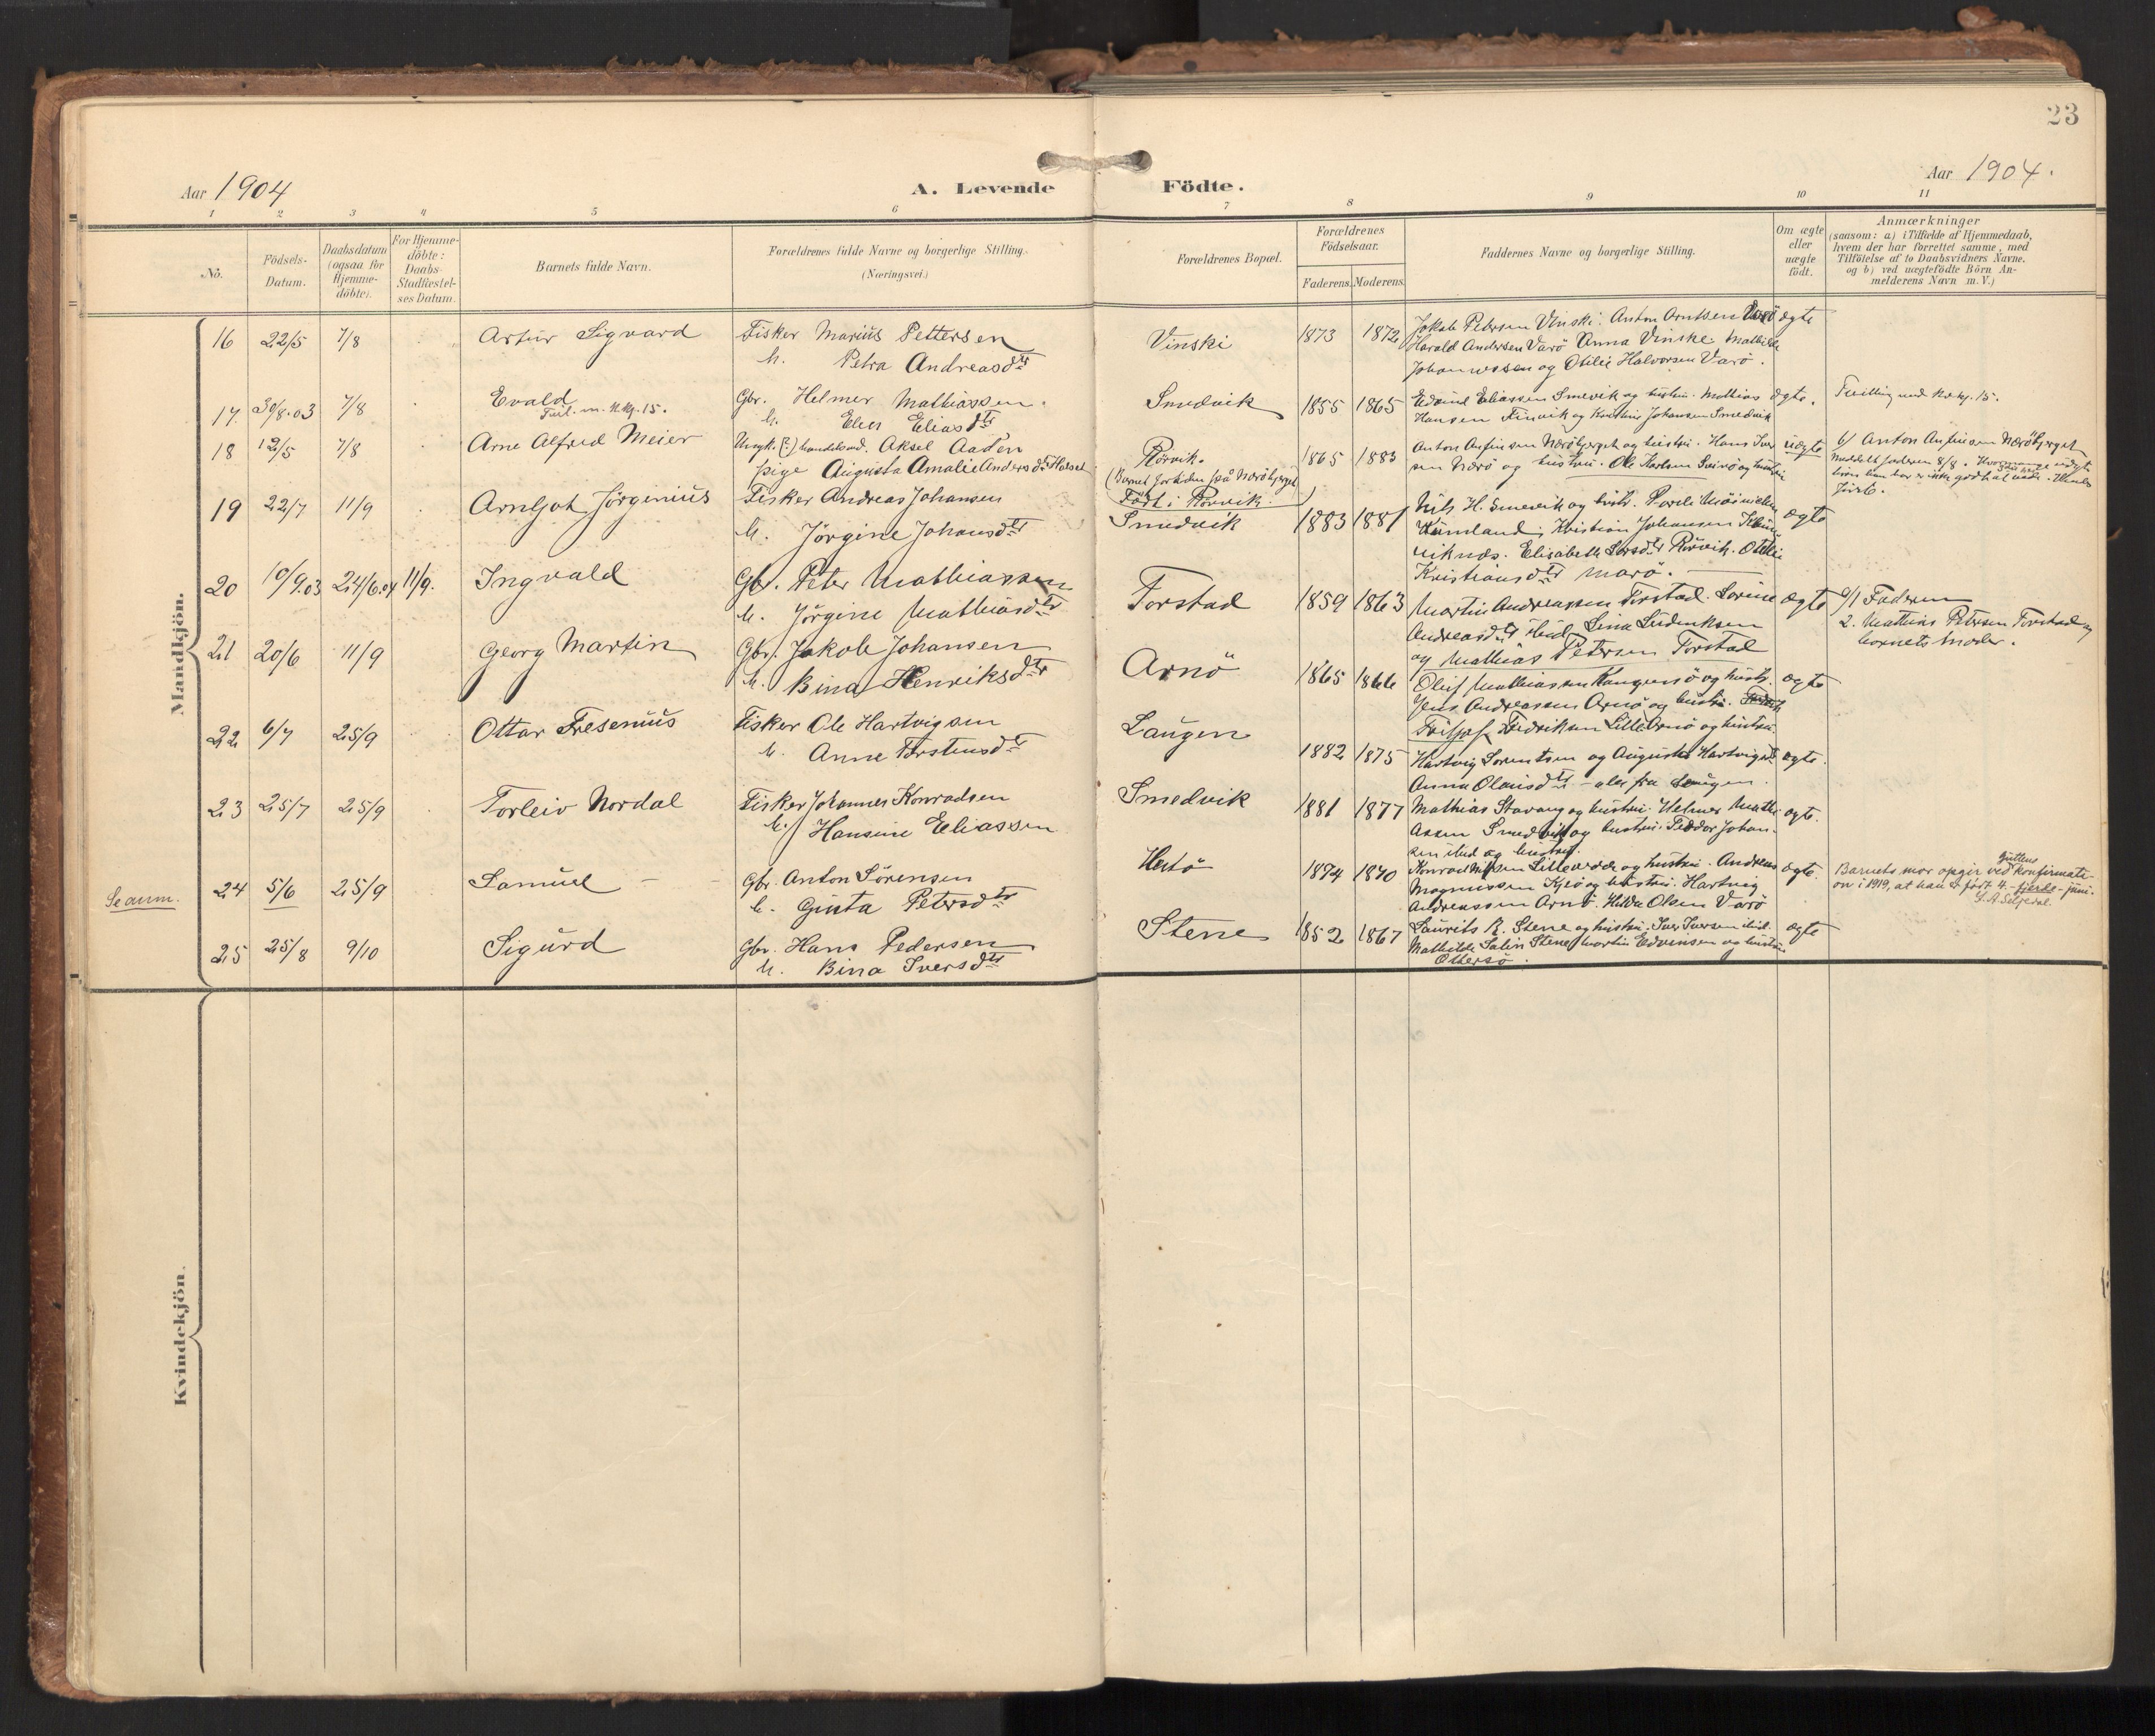 23
Aar 1904
A. Levende Födte.
Aar 1904.
1 2 3 4 5 6 7 8 9 10 11
No.
Födsels-Datum.
Daabsdatum (ogsaa for Hjemme-döbte).
For Hjemme-döbte: Daabs-Stadfæstel-ses Datum.
Barnets fulde Navn.
Forældrenes fulde Navne og borgerlige Stilling.
(Næringsvei.)
Forældrenes Bopæl.
Forældrenes Födselsaar.
Faderens. Moderens.
Faddernes Navne og borgerlige Stilling.
Om ægte eller uægte födt.
Anmærkninger
(saasom: a) i Tilfælde af Hjemmedaab,
hvem der har forrettet samme, med
Tilföielse af to Daabsvidners Navne.
og b) ved uægtefödte Börn An-
melderens Navn m. V.)
Mandkjön.
16 22/5 7/8 Artur Sigvard Fisker Marius Pettersen
h. Petra Andreasdtr
Vinski 1873 1872
Jakob Petersen Vinski. Anton Arntsen Varö
Harald Andersen Varö Anna Vinski. Mathilde
Johannessen og Otilie Halvorsen Varö.
ægte
17. 30/8.03 7/8 Evald
Tvil. m. Kkj. 15.
Gbr. Helmer Mathiassen.
h. Elen Eliasdtr
Smedvik 1855 1865
Edvind Eliassen Smevik og hustru. Mathias
Hansen Finvik og Kristine Johansen Smedvik
ægte. Tvilling med No kj. 15.
18 12/5 7/8 Arne Alfred Meier
Ungk. (?) handelsbud. Aksel Aaden
pige Augusta Amalie Andersdtr Hassel
Rörvik.
(Barnet fostiden på Nærökjerget)
Födt i Rörvik.
1865 1883
Anton Anfinsen Nærökjerget og hustru. Hans Iver
sen Nærö og hustru. Ole Karlsen Svinö og hustru
uægte
b) Anton Anfinsen Nærökjerget
meddelt faderen 8/8.
19 22/7 11/9 Arnljot Jörginius Fisker Andreas Johansen
h. Jörgine Johansdtr
Smedvik 1883 1881
Nils H. Smevik og hustr.
Kristian Johansen
viknes. Elisabeth Larsdtr Rörvik. Otelie
Kristiansdtr Marö.
ægte
20 10/9.03 24/6.04 11/9. Ingvald Gbr. Peter Mathiassen
h. Jörgine Mathiasdtr
Forstad 1859 1863
Martin Andreassen Forstad. Lorine
Andreasdtr ibid. Lina Ludviksen
og Mathias Petersen Forstad
ægte a/1 Faderen
2. Mathias Petersen Forstad og
barnets moder.
21 20/6 11/9 Georg Martin Gbr. Jakob Johansen
h. Bina Henriksdtr
Arnö 1865 1866
Oluf Mathiassen Kongensö og hustr.
Jens Andreassen Arnö og hustru.
Fritjof Fredriksen Lille Arnö og hustru.
ægte
22 6/7 25/9 Ottar Fresenius Fisker Ole Hartvigsen
h. Anne Torstensdtr
Laugen 1882 1875
Hartvig Lorentsen og Augusta Hartvigsdtr
Anna Olausdtr - alle fra Laugen.
ægte.
23 25/7 25/9 Torleiv Nordal Fisker Johannes Konradsen
h. Hansine Eliassen
Smedvik 1881 1877
Mathias Stavang og hustru. Helmer Mathi-
assen Smedvik og hustru. Peddor Johan-
sen ibid og hustru.
ægte.
Se anm. 24 5/6 25/9 Samuel Gbr. Anton Sörensen
h. Gusta Petersdtr
Hestö 1874 1870
Konrad Nilsen Lillevarde og hustru. Andreas
Magnussen Kjeö og hustru. Hartvig
Andreassen Arnö. Hilda Olsen Varö
ægte.
Barnets mor opgir ved guttens konfirmati-
on i 1919, at han er födt 4. - fjerde - juni.
S. A. Seljedal
25 25/8 9/10 Sigurd Gbr. Hans Pedersen
h. Bina Iversdtr
Stene 1852 1867
Laurits R. Stene og hustru. Iver Iversen ibid.
Mathilde Salin Stene, Martin Edvinsen og hustru
Ottersö.
ægte
Kvindekjön.